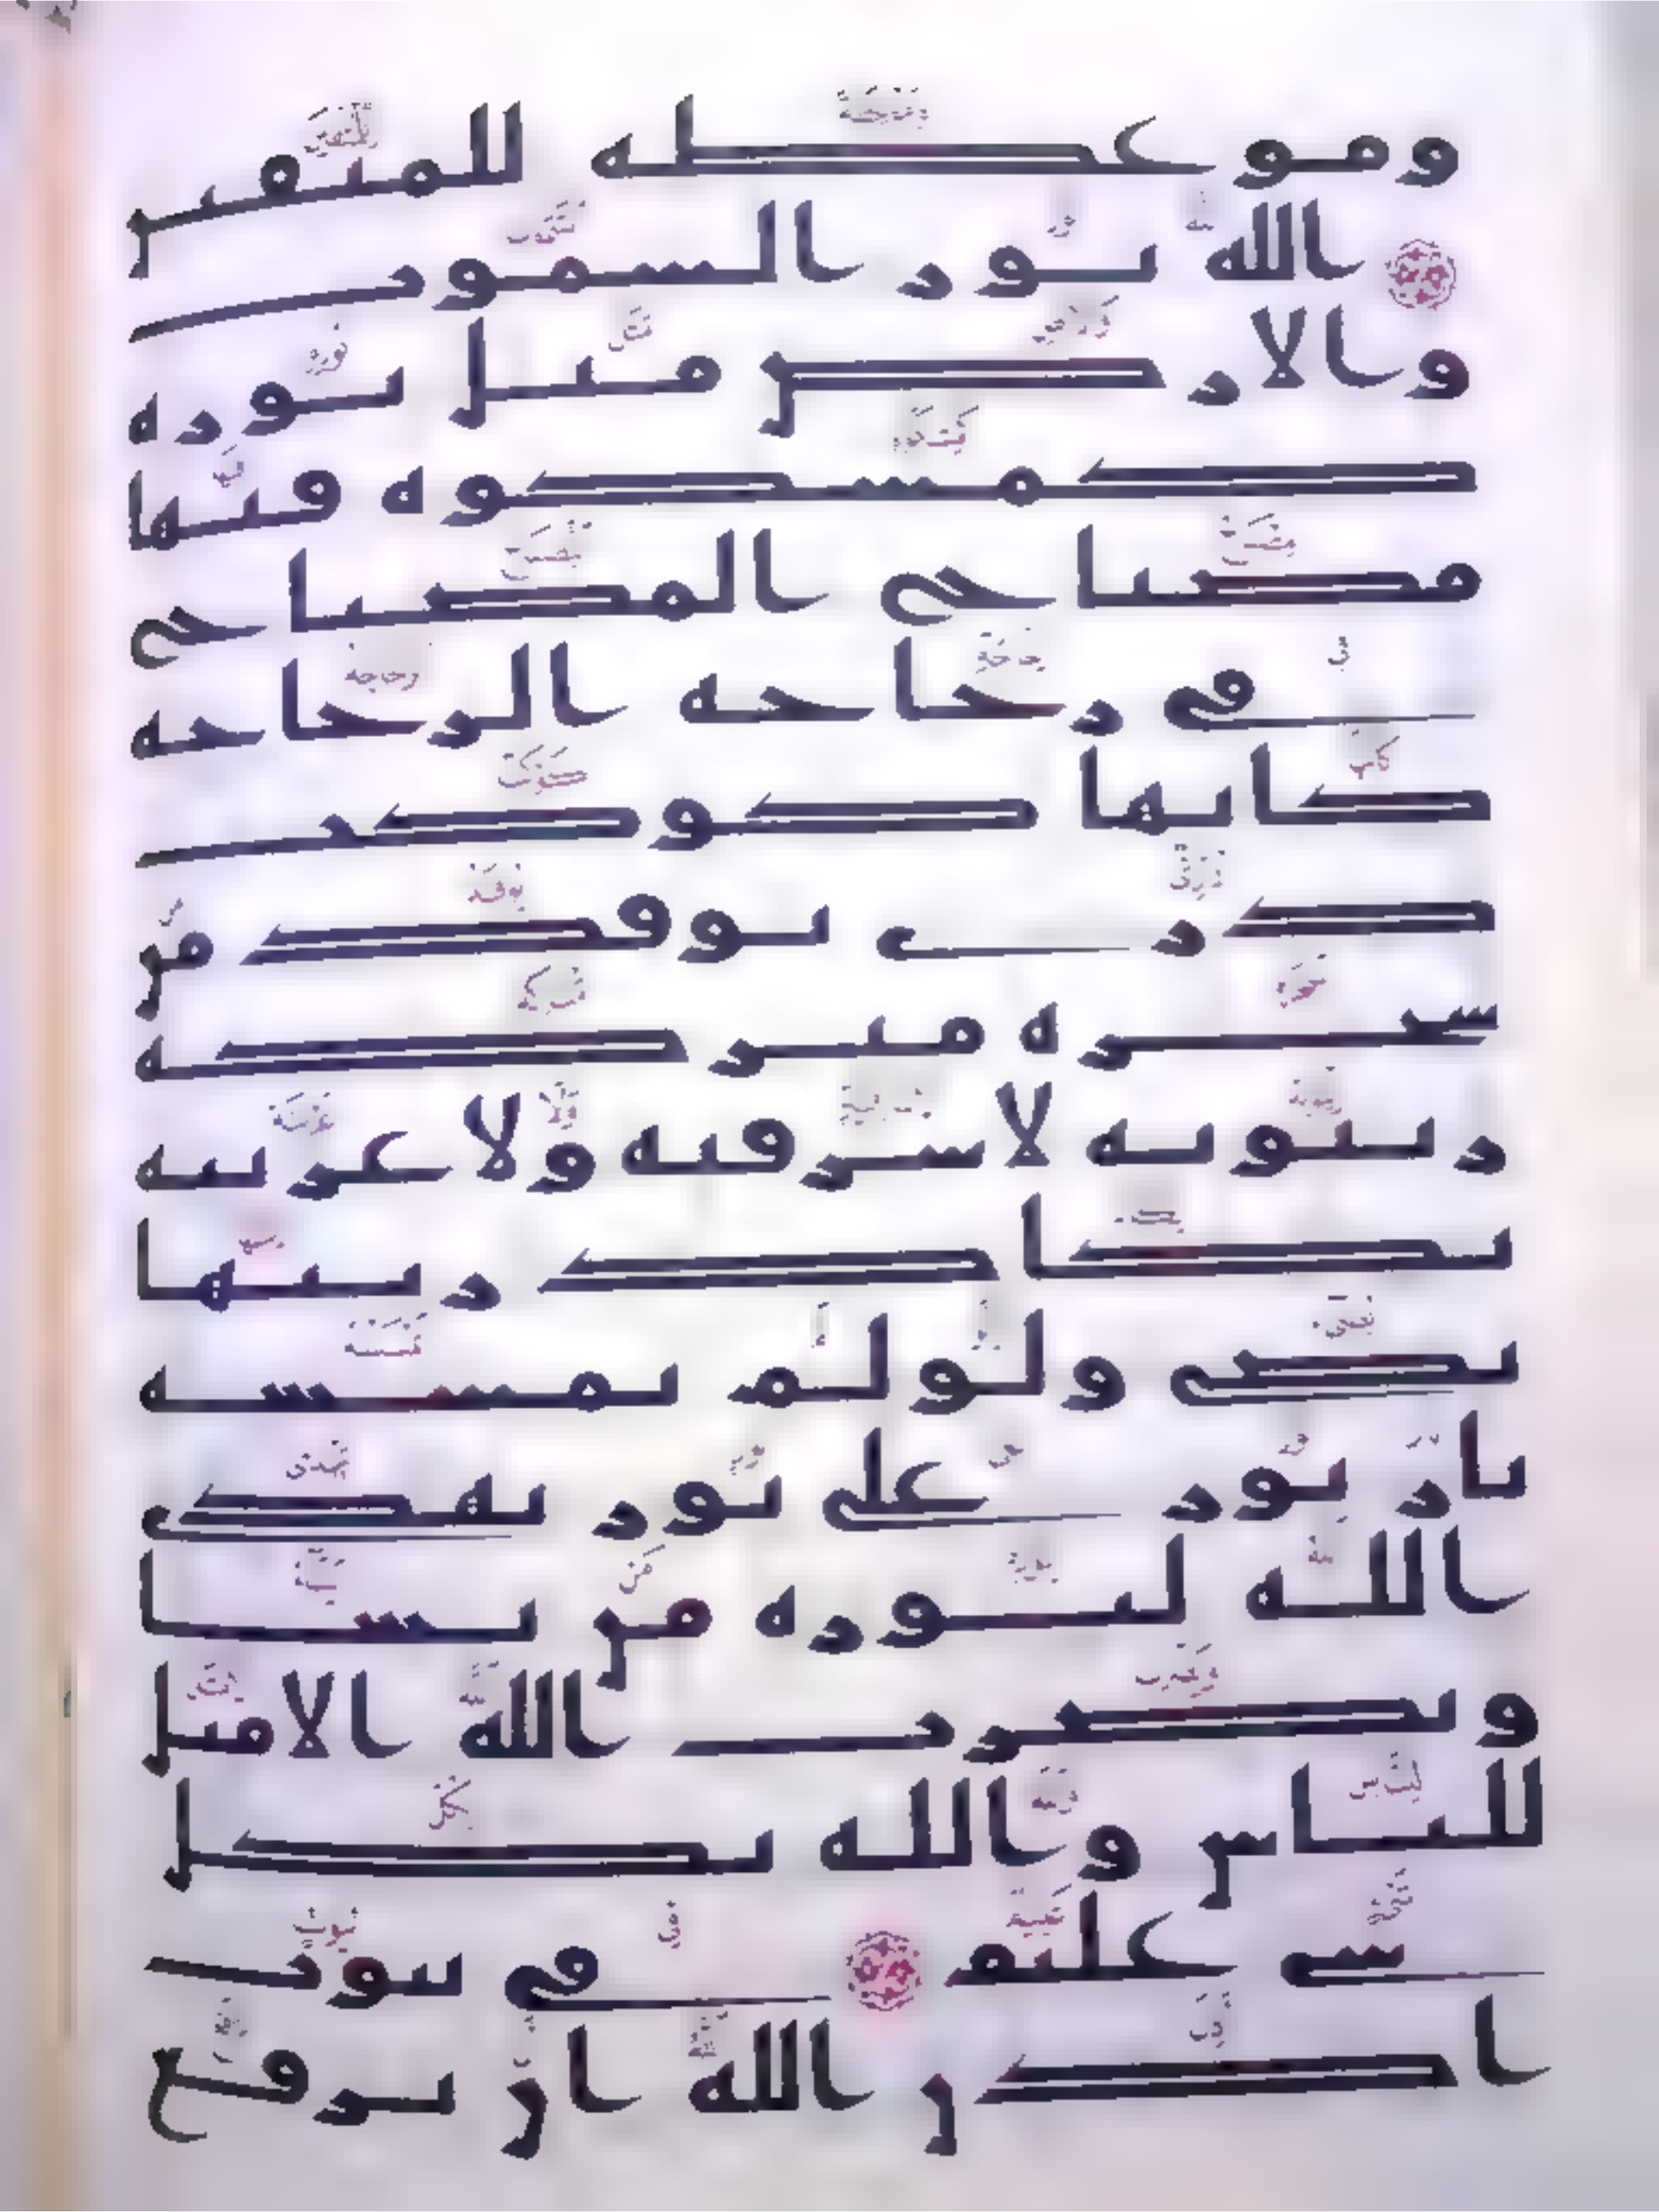 وموعظه للمتقين
الله نور السموت
والارض مثل نوره
كمشكوه فيها
مصباح المصباح
في زجاجه الزجاجه
كانها كوكب
دري يوقد من
شجره مبركه
زيتونه لا شرقيه ولا غربيه
يكاد زيتها
يضي ولو لم تمسسه
نار نور على نور يهدي
الله لنوره من يشا
ويضرب الله الامثل
للناس والله بكل
شي عليم في بيوت
اذن الله ان ترفع